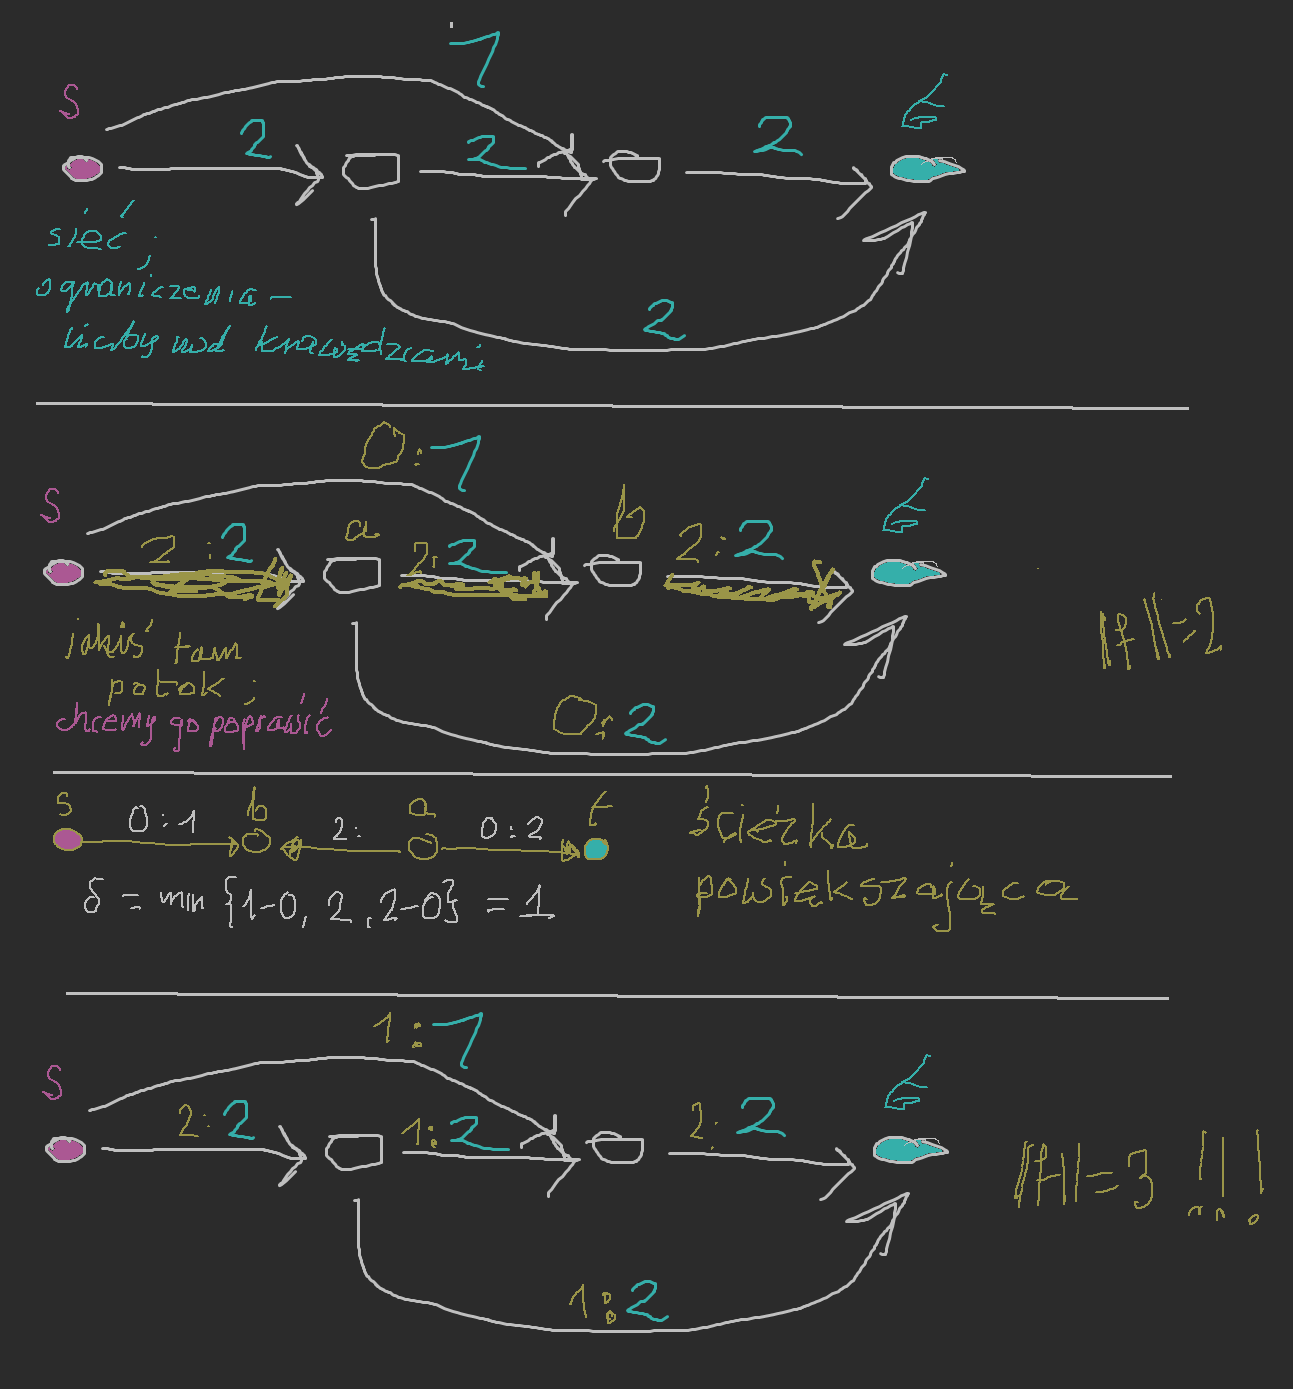 1
s 2 2 2 t
sieć;
ograniczenia –
liczby nad krawędziami
2
0:1
s 2:2 a 2:2 b 2:2 t
jakiś tam
potok;
chcemy go poprawić
||f||=2
0:2
s 0:1 b 2: a 0:2 t
ścieżka
powiększająca
δ = min {1-0, 2, 2-0} = 1
1:1
s 2:2 1:2 2:2 t
||f||=3 !!!
1:2